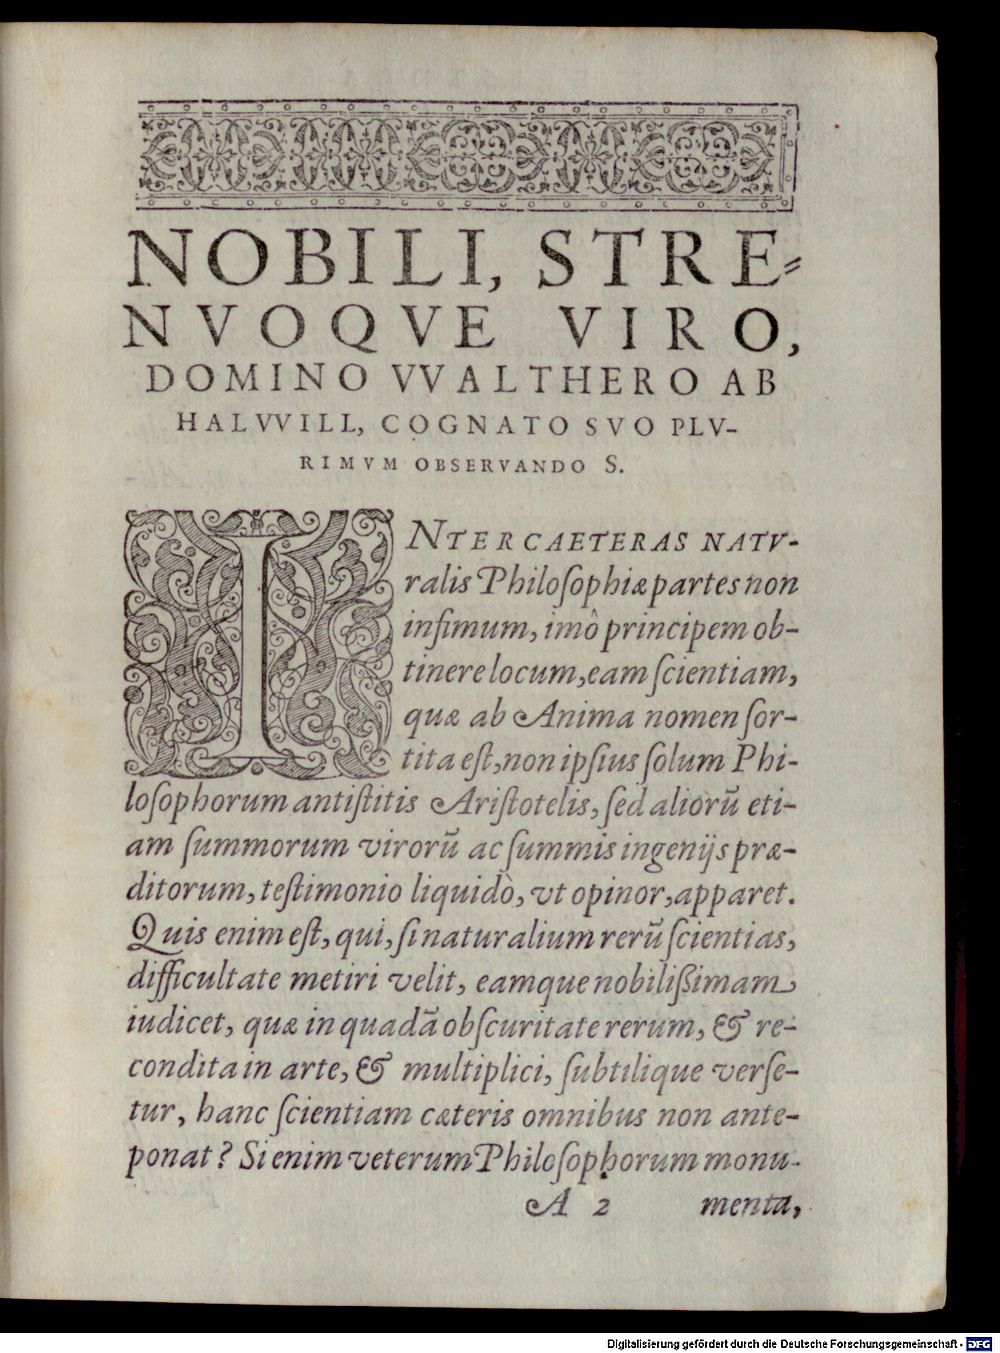 NOBILI, STRE-
NVOQVE VIRO,
DOMINO VVALTHERO AB
HALVVILL, COGNATO SVO PLV-
RIMVM OBSERVANDO S.
INTER CAETERAS NATV-
ralis Philoſophiæ partes non
infimum, imò principem ob-
tinere locum, eam ſcientiam,
quæ ab Anima nomen ſor-
tita eſt, non ipſius ſolum Phi-
loſophorum antiſtitis Ariſtotelis, ſed aliorũ eti-
am ſummorum virorũ ac ſummis ingenijs præ-
ditorum, teſtimonio liquidò, vt opinor, apparet.
Quis enim eſt, qui, ſi naturalium rerũ ſcientias,
difficultate metiri velit, eamque nobilißimam
iudicet, quæ in quadã obſcuritate rerum, & re-
condita in arte, & multiplici, ſubtilique verſe-
tur, hanc ſcientiam cæteris omnibus non ante-
ponat? Si enim veterum Philoſophorum monu-
A 2 menta,
Digitalisierung gefördert durch die Deutsche Forschungsgemeinschaft - DFG